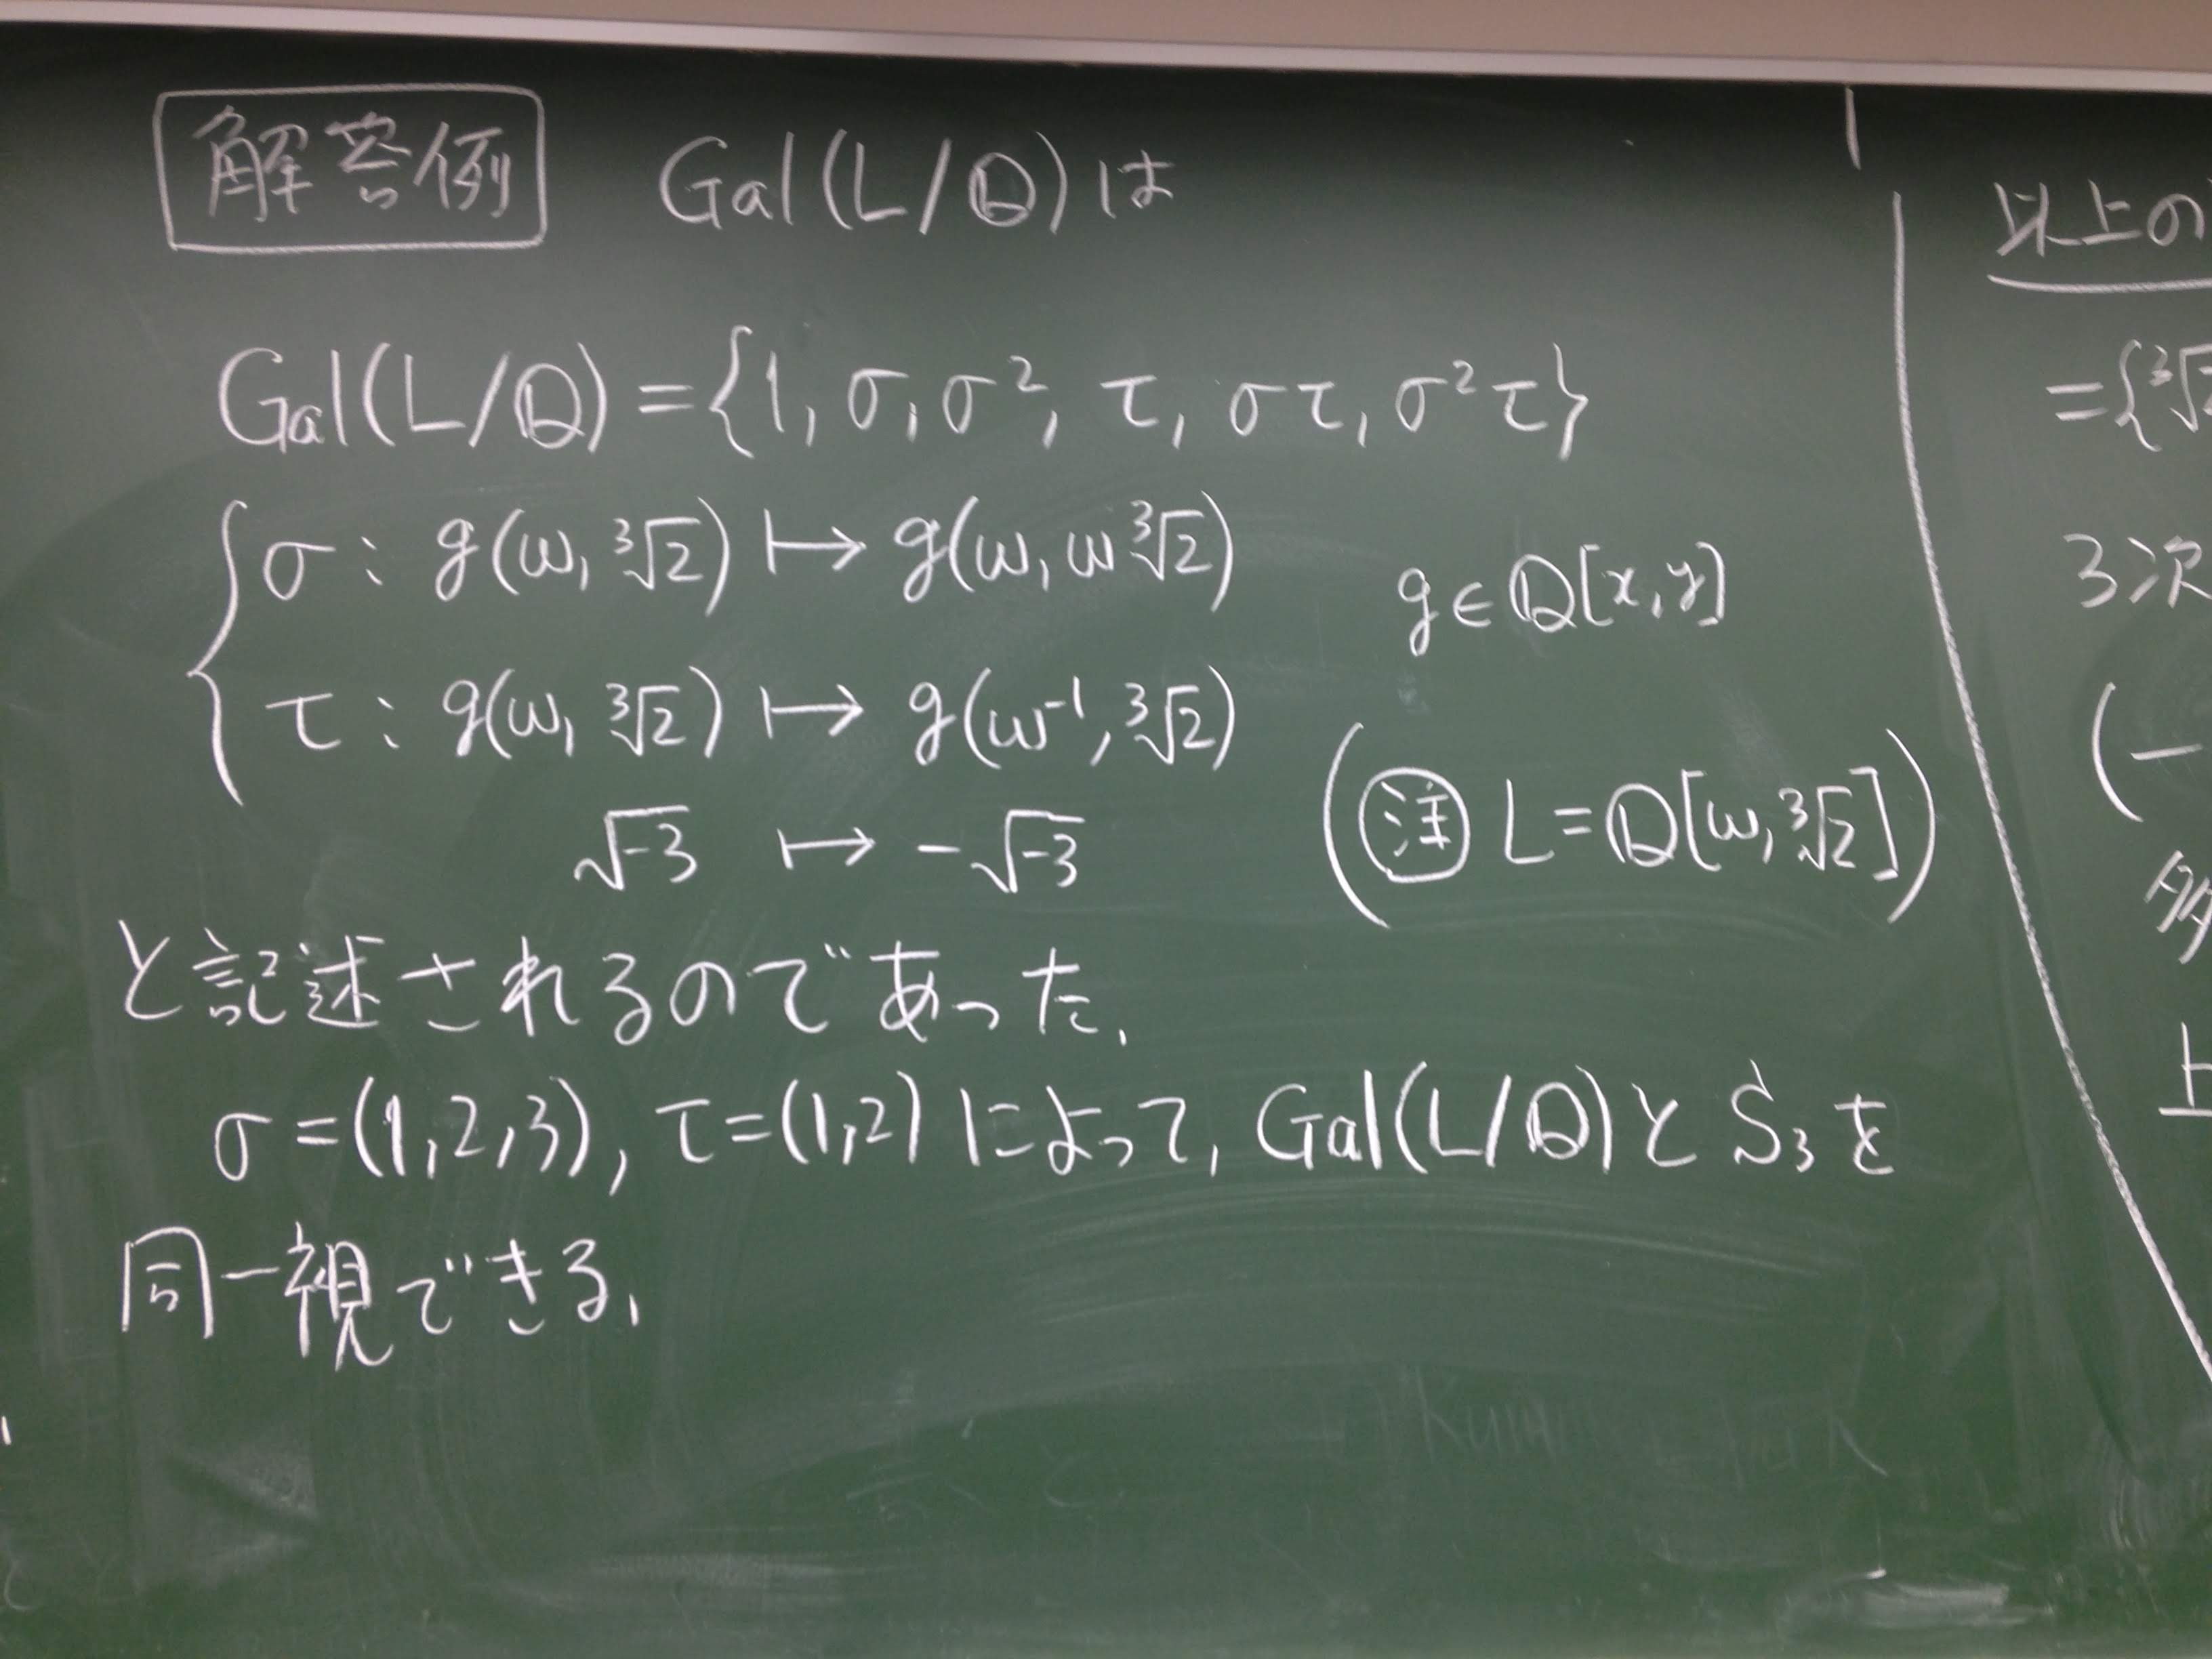 解答例 Gal(L/ℚ)は
Gal(L/ℚ)={1, σ, σ², τ, στ, σ²τ}
σ: g(ω, ∛2) ↦ g(ω, ω∛2)
g∈ℚ[x,y]
τ: g(ω, ∛2) ↦ g(ω⁻¹, ∛2)
√-3 ↦ -√-3
(注 L=ℚ[ω, ∛2])
と記述されるのであった.
σ=(1,2,3), τ=(1,2)によって, Gal(L/ℚ)とS₃を
同一視できる.
以上の
={∛
3次
(一
多
上